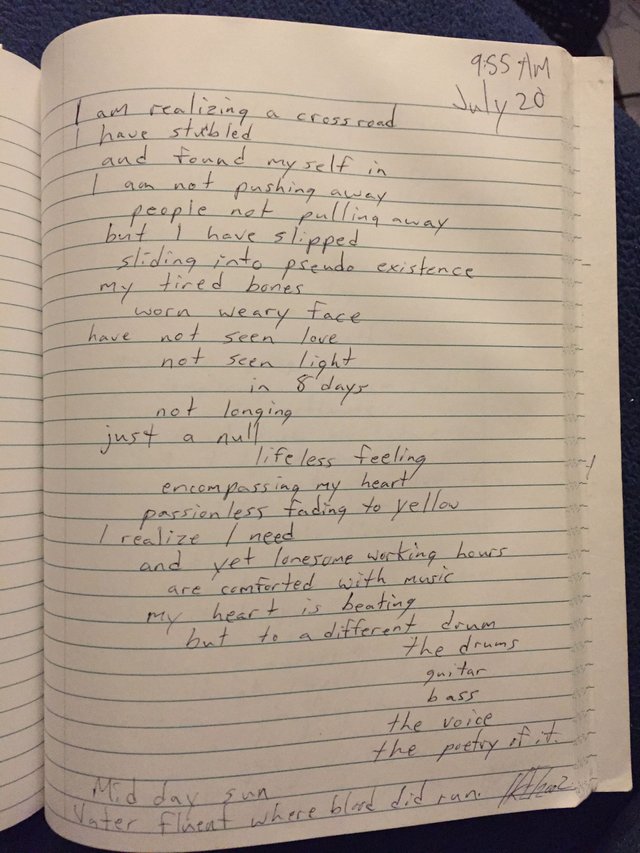 9:55 AM
July 20
I am realizing a crossroad
I have stubled
and found myself in
I am not pushing away
people not pulling away
but I have slipped
sliding into pseudo existence
my tired bones
worn weary face
have not seen love
not seen light
in 8 days
not longing
just a null
lifeless feeling
encompassing my heart
passionless fading to yellow
I realize I need
and yet lonesome working hours
are comforted with music
my heart is beating
but to a different drum
the drums
guitar
bass
the voice
the poetry of it.
Mid day sun
Water fluent where blood did run.